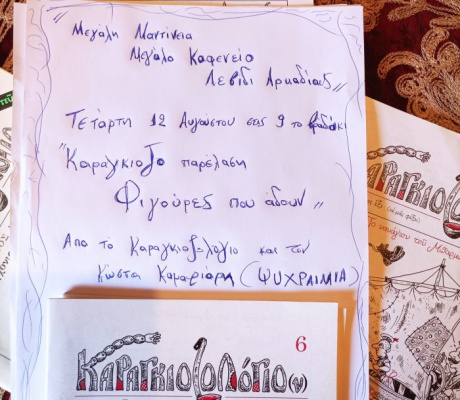 Μεγάλη Μαντίνεια
Μεγάλο Καφενείο
Λεβίδι Αρκαδίας"
Τετάρτη 12 Αυγούστου στις 9 το βραδάκι
"Καραγκιοζο παρέλαση
Φιγούρες που άδουν"
Από το Καραγκιοζολόγιο και τον
Κώστα (ΨΥΧΡΑΙΜΙΑ)
6
ΚΑΡΑΓΚΙΟΖΟΛΟΓΙΟ(ν)
ΚΑΡΑΓΚΙΟΖ